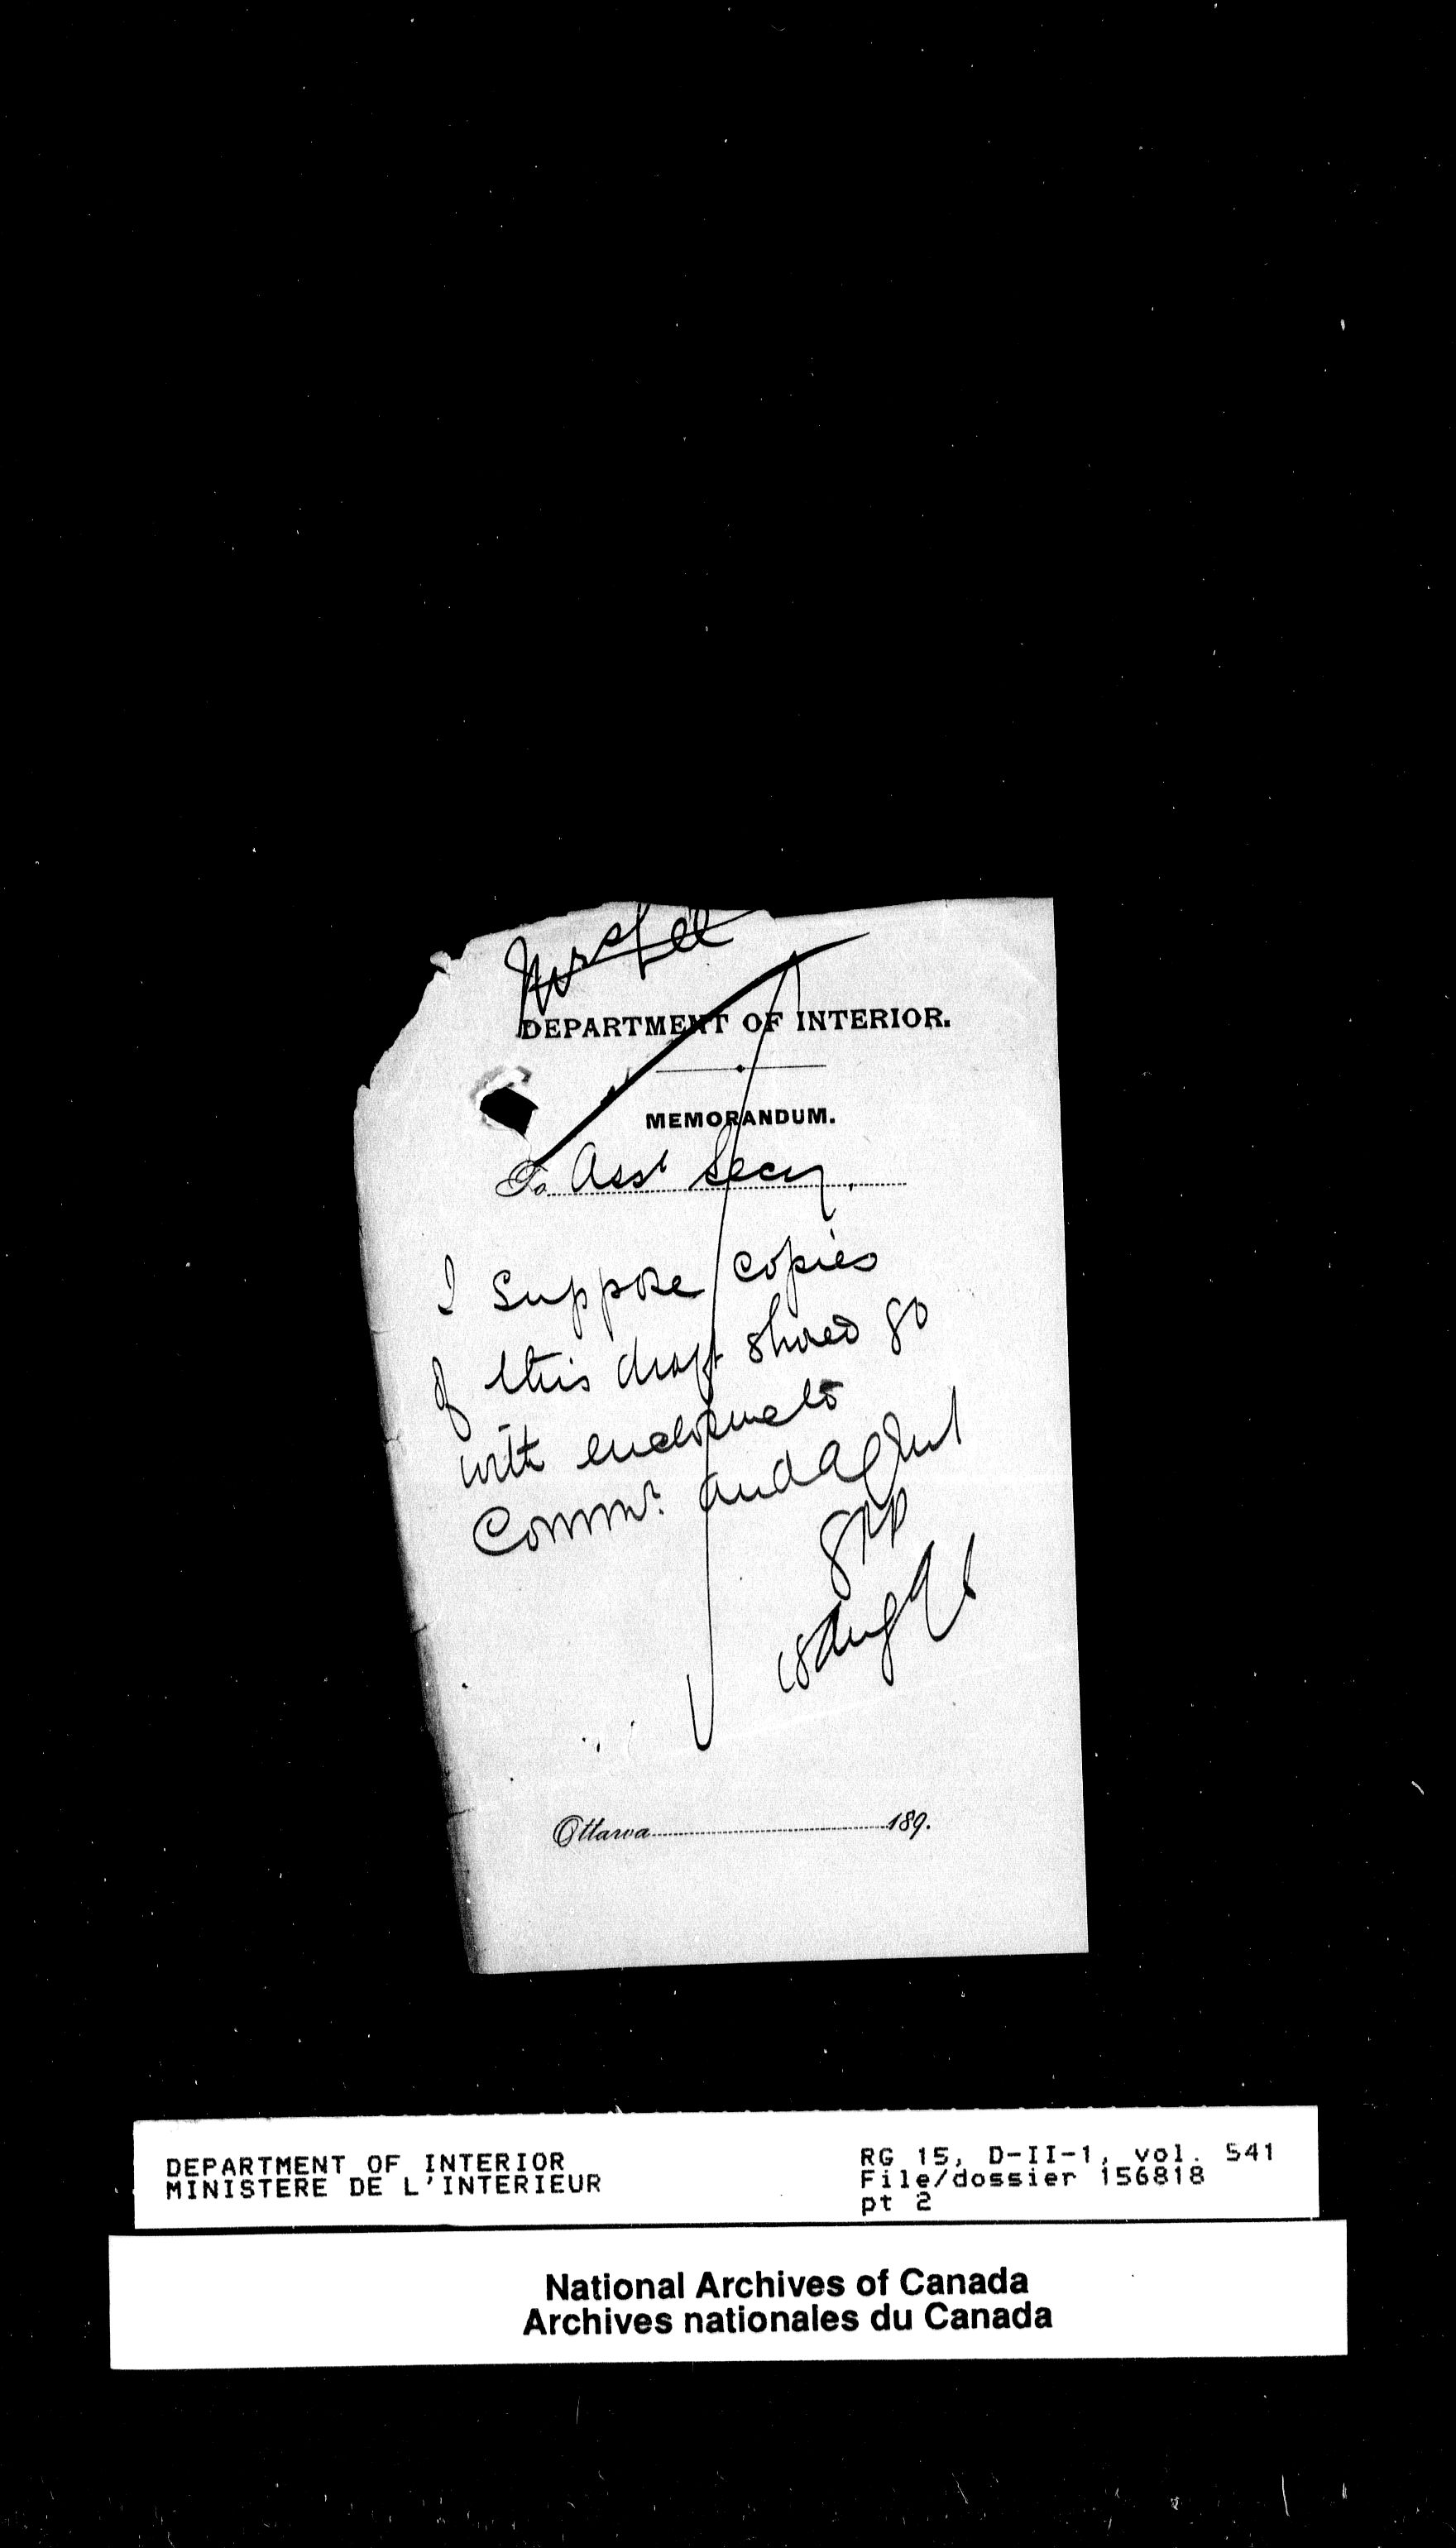 DEPARTMENT OF INTERIOR.
MEMORANDUM.
To Asst Secy.
I suppose copies
of this draft should go
with enclosure to
Commr. and agent
Aug
Ottawa 189.
DEPARTMENT OF INTERIOR
MINISTERE DE L'INTERIEUR
RG 15, D-II-1, vol. 541
File/dossier 156818
pt 2
National Archives of Canada
Archives nationales du Canada